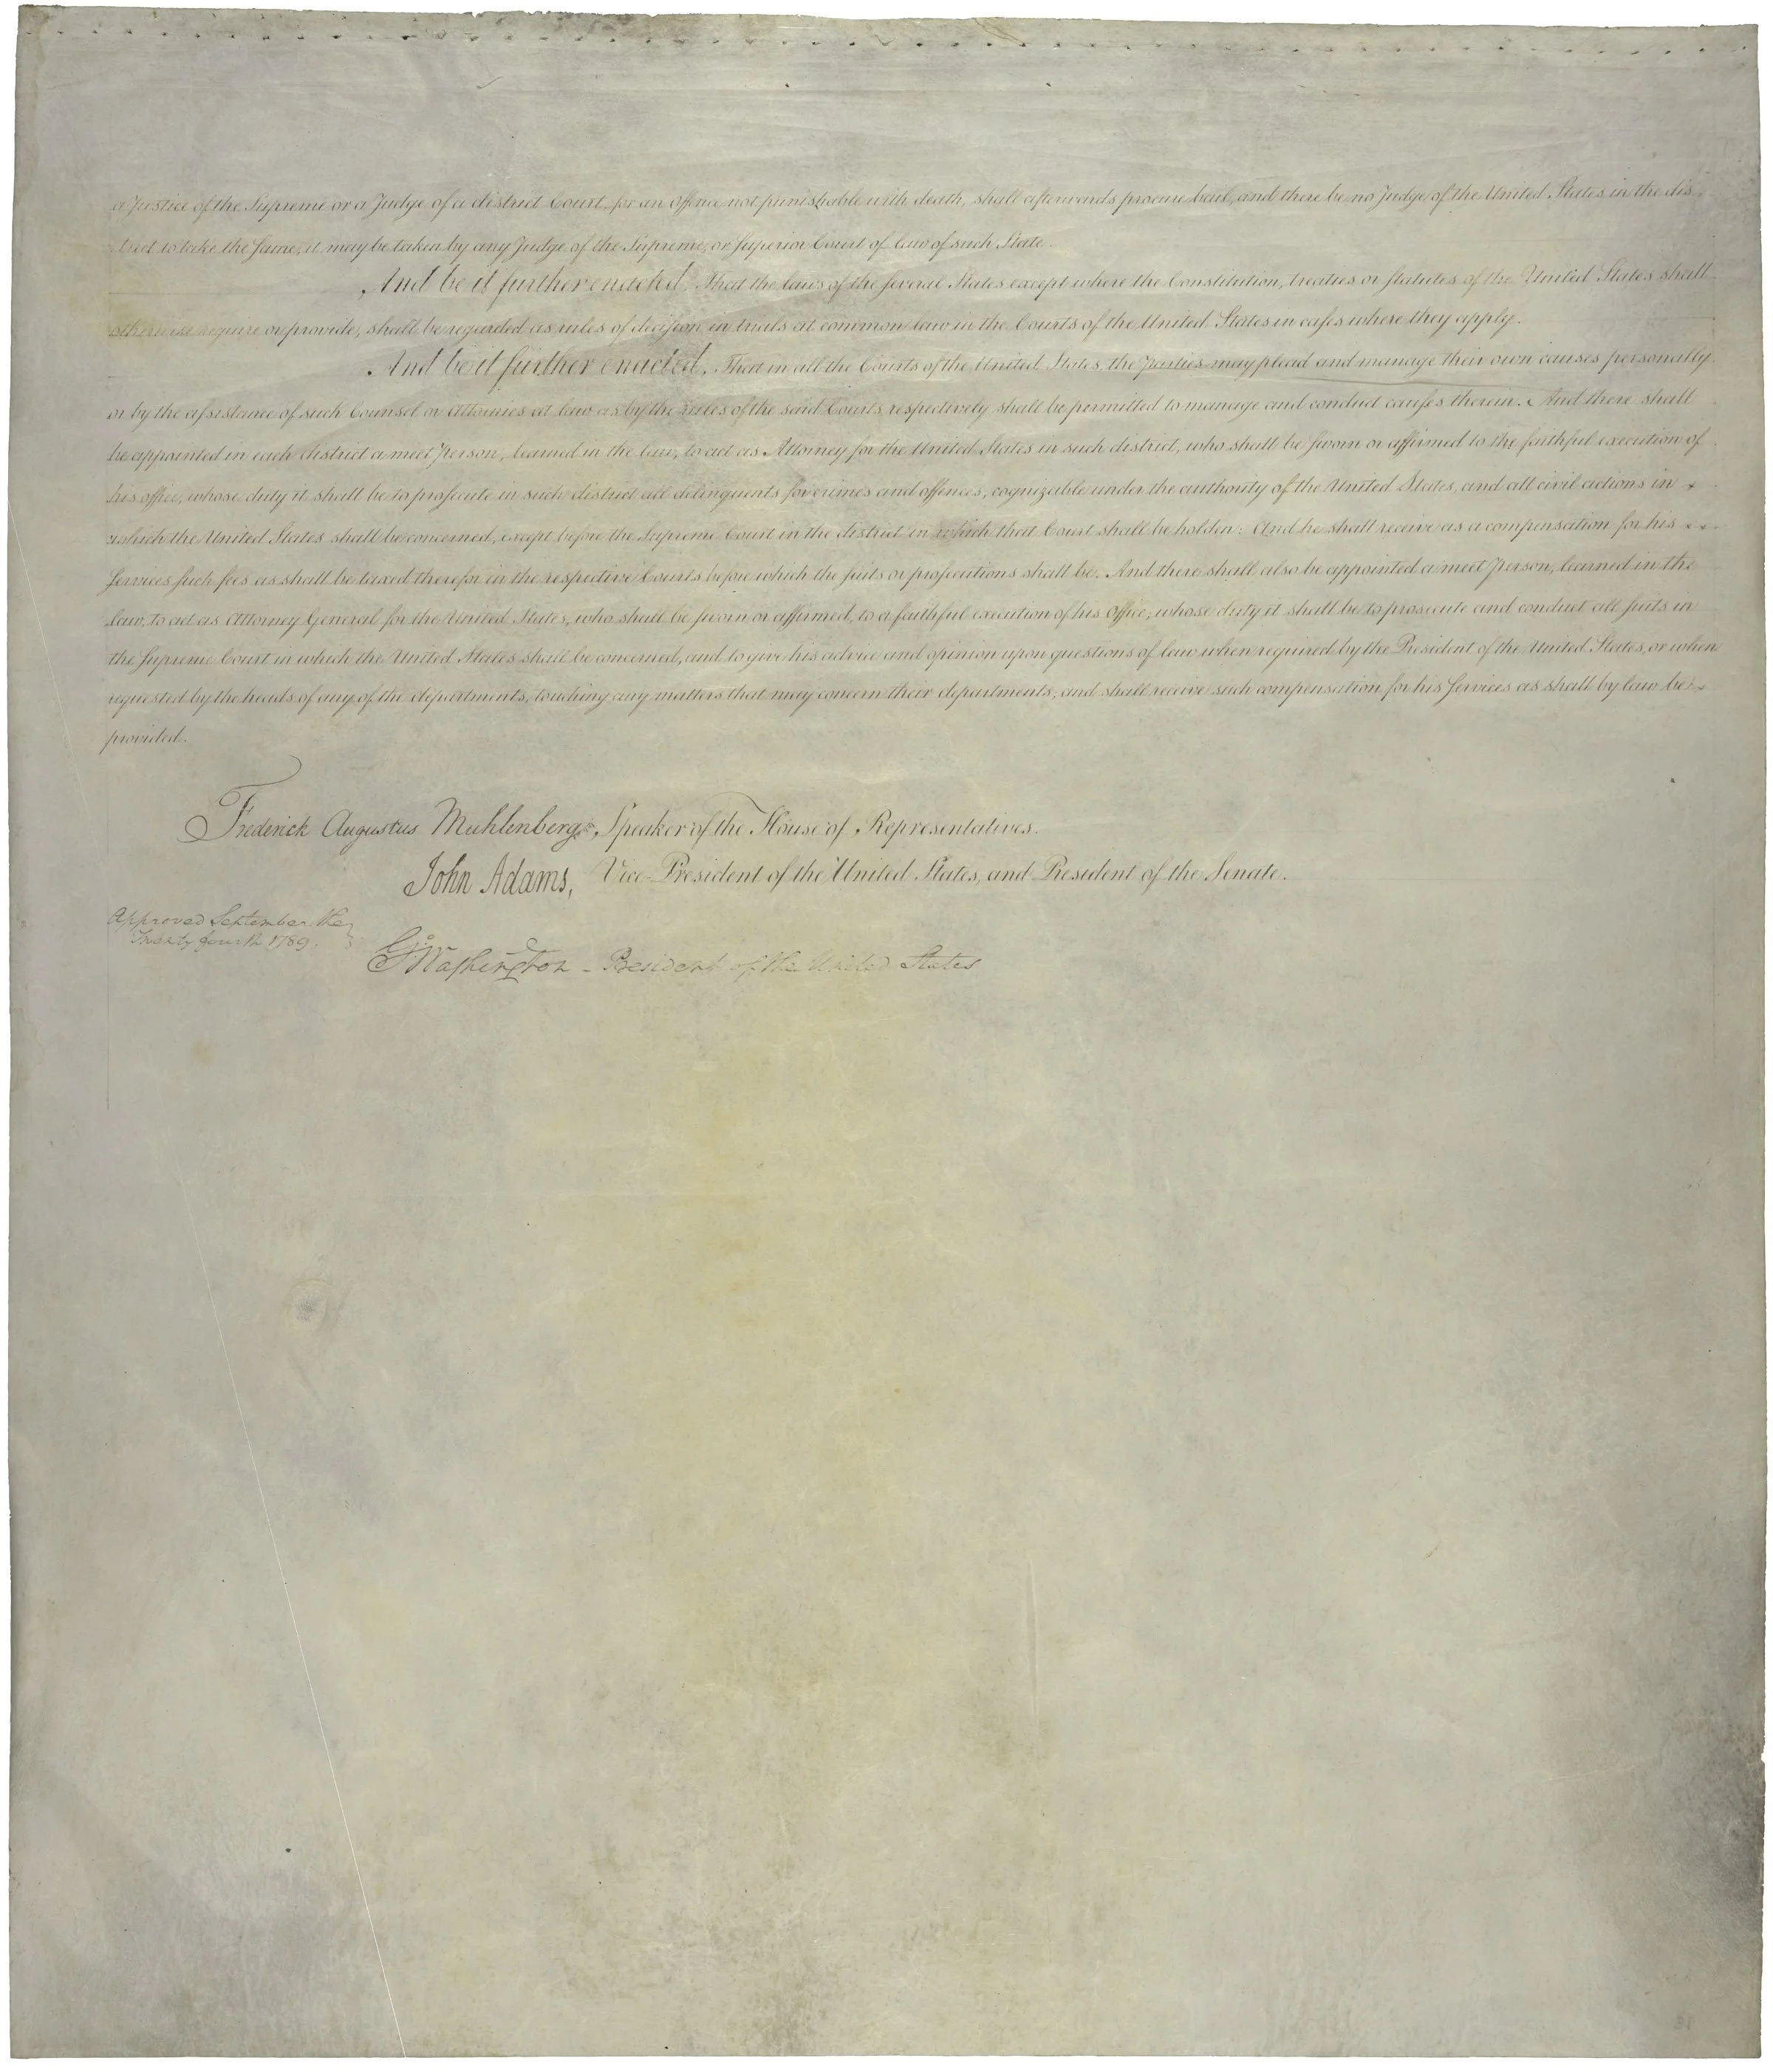 a Justice of the Supreme or a Judge of a district Court for an offence not punishable with death, shall afterwards procure bail, and there be no Judge of the United States in the dis-
trict to take the same, it may be taken by any Judge of the Supreme, or Superior Court of law of such State.
And be it further enacted, That the laws of the several States except where the Constitution, treaties or statutes of the United States shall
otherwise require or provide, shall be regarded as rules of decision in trials at common law in the Courts of the United States in cases where they apply.
And be it further enacted, That in all the Courts of the United States, the parties may plead and manage their own causes personally
or by the assistance of such Counsel or Attornies at law as by the rules of the said Courts respectively shall be permitted to manage and conduct causes therein. And there shall
be appointed in each district a meet person, learned in the law, to act as Attorney for the United States in such district, who shall be sworn or affirmed to the faithful execution of
his office, whose duty it shall be to prosecute in such district all delinquents for crimes and offences, cognizable under the authority of the United States, and all civil actions in
which the United States shall be concerned, except before the Supreme Court in the district in which that Court shall be holden: And he shall receive as a compensation for his
services such fees as shall be taxed therefor in the respective Courts before which the suits or prosecutions shall be. And there shall also be appointed a meet person, learned in the
law, to act as Attorney General for the United States, who shall be sworn or affirmed, to a faithful execution of his office, whose duty it shall be to prosecute and conduct all suits in
the Supreme Court in which the United States shall be concerned, and to give his advice and opinion upon questions of law when required by the President of the United States, or when
requested by the heads of any of the departments, touching any matters that may concern their departments, and shall receive such compensation for his services as shall by law be
provided.
Frederick Augustus Muhlenberg, Speaker of the House of Representatives.
John Adams, Vice-President of the United States, and President of the Senate.
Approved September the
Twenty fourth 1789.
Go: Washington - President of the United States